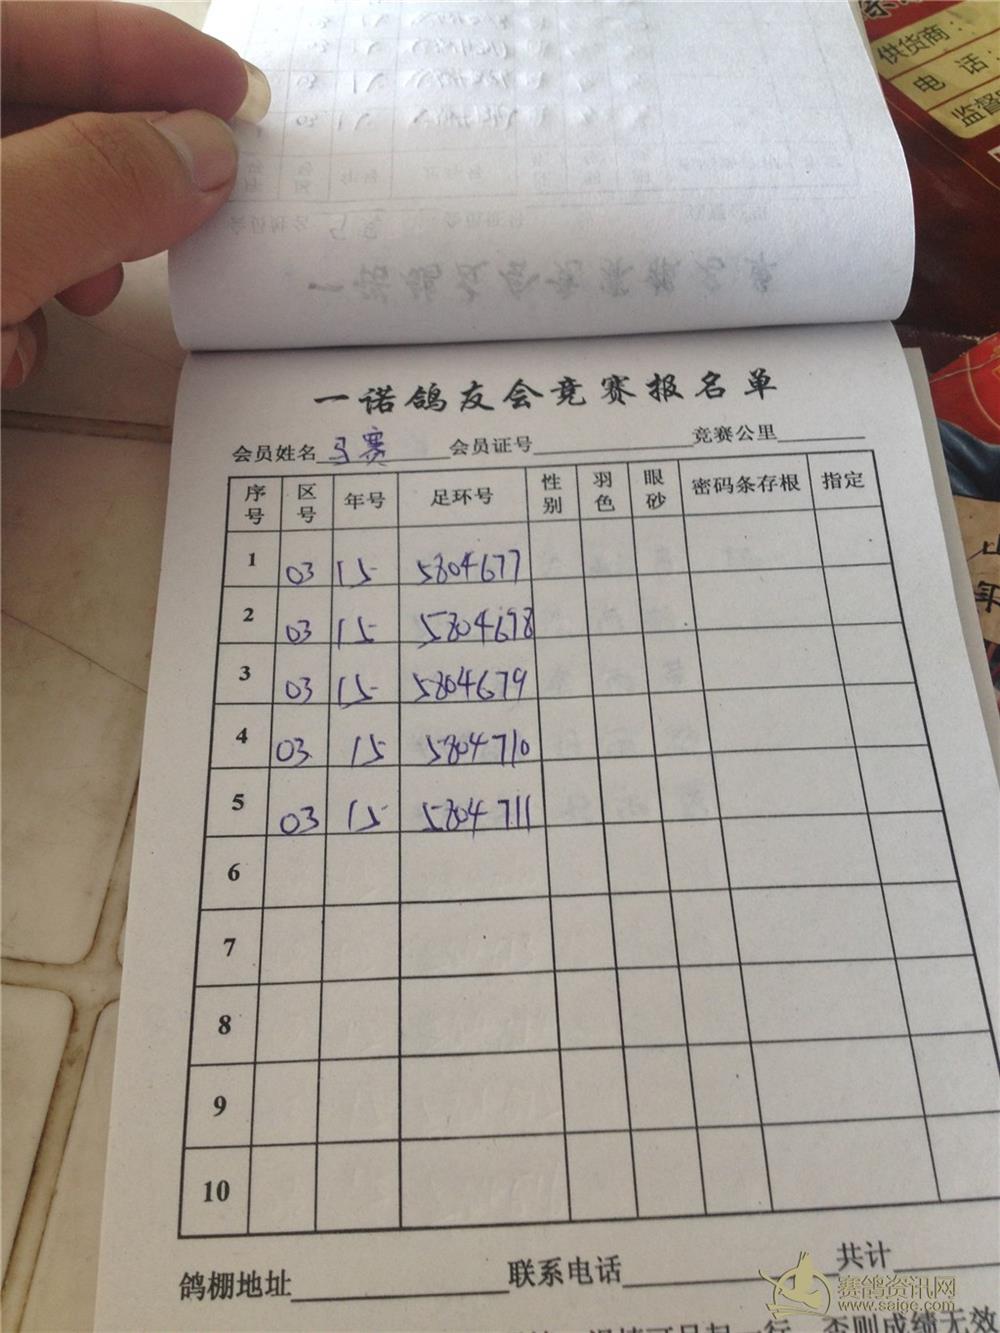 供货商：
电 话：
监督
一诺鸽友会竞赛报名单
会员姓名 马赛 会员证号 竞赛公里
序号 区号 年号 足环号 性别 羽色 眼砂 密码条存根 指定
1 03 15 5804677
2 03 15 5804678
3 03 15 5804679
4 03 15 5804710
5 03 15 5804711
6
7
8
9
10
鸽棚地址 联系电话 共计
否则成绩无效
山
年
赛鸽资讯网
www.saige.com